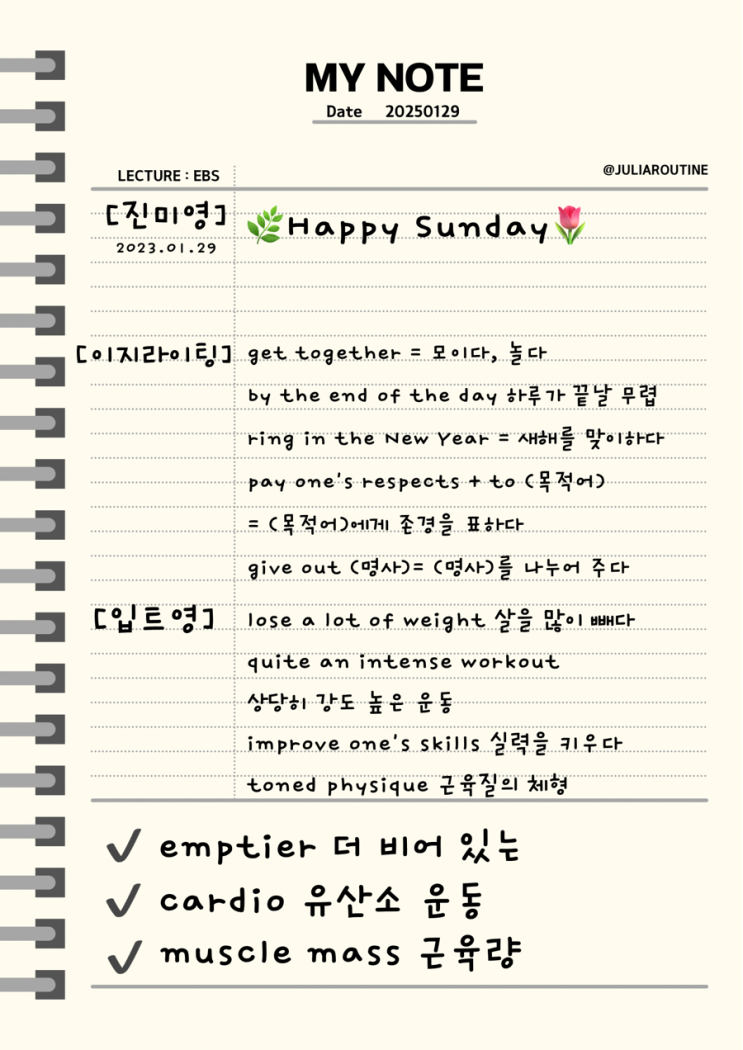 MY NOTE
Date 20250129
LECTURE : EBS
@JULIAROUTINE
[진미영]
2023.01.29
🌿Happy Sunday🌷
[이지라이팅]
get together = 모이다, 놀다
by the end of the day 하루가 끝날 무렵
ring in the New Year = 새해를 맞이하다
pay one's respects + to (목적어)
= (목적어)에게 존경을 표하다
give out (명사)= (명사)를 나누어 주다
[입트영]
lose a lot of weight 살을 많이 빼다
quite an intense workout
상당히 강도 높은 운동
improve one's skills 실력을 키우다
toned physique 근육질의 체형
✔ emptier 더 비어 있는
✔ cardio 유산소 운동
✔ muscle mass 근육량